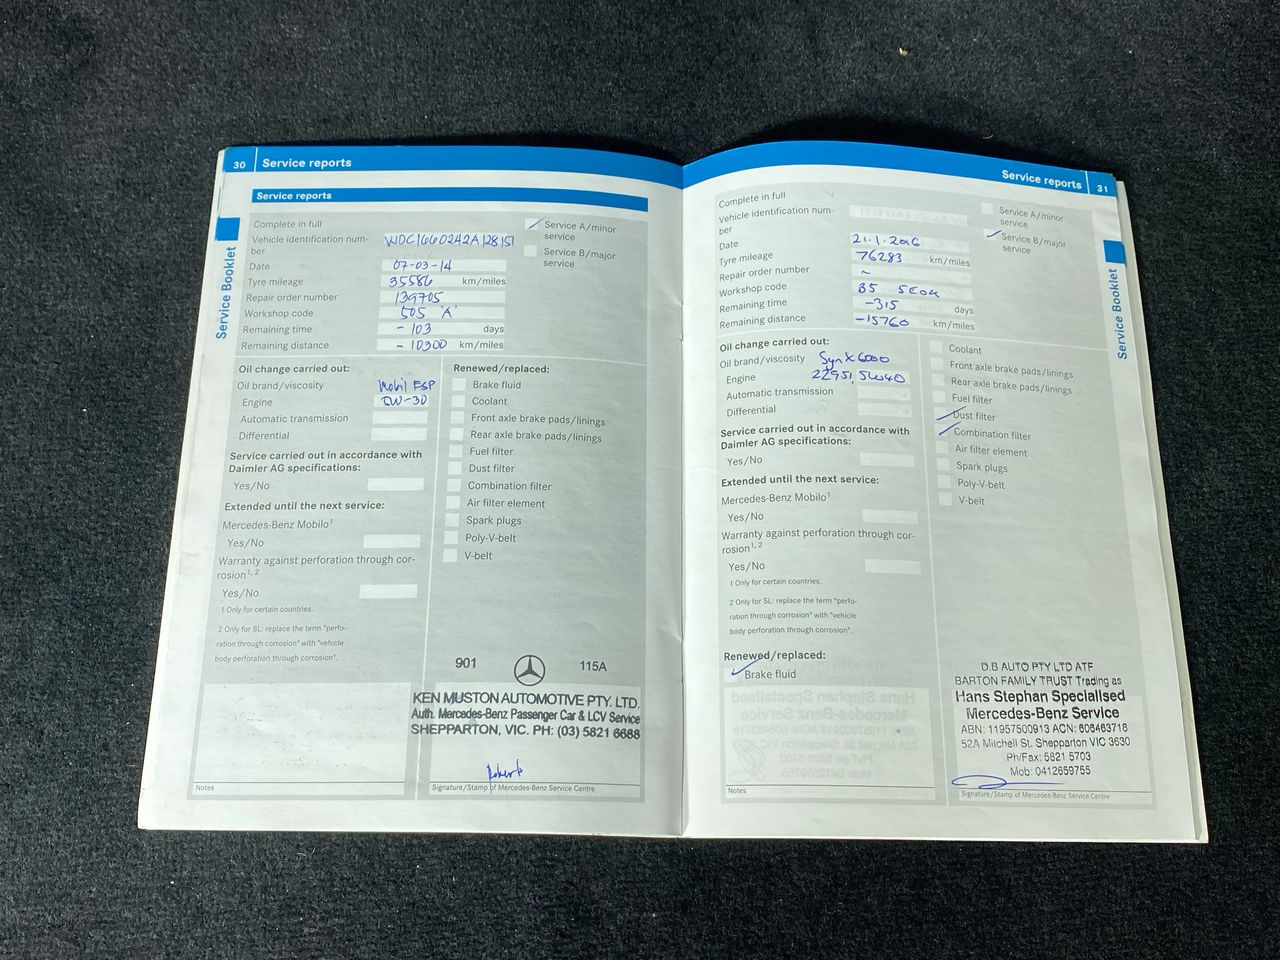 30 Service reports
Service reports
Service Booklet
Complete in full
Vehicle identification num-
ber
Date 07-03-14
Tyre mileage 35586 km/miles
Repair order number 139705
Workshop code 505 'A'
Remaining time - 103 days
Remaining distance - 10300 km/miles
Service A/minor
service
Service B/major
service
Oil change carried out:
Oil brand/viscosity Mobil ESP
Engine 5W-30
Automatic transmission
Differential
Service carried out in accordance with
Daimler AG specifications:
Yes/No
Extended until the next service:
Mercedes-Benz Mobilo¹
Yes/No
Warranty against perforation through cor-
rosion¹,²
Yes/No
1 Only for certain countries.
2 Only for SL: replace the term "perfo-
ration through corrosion" with "vehicle
body perforation through corrosion".
Renewed/replaced:
Brake fluid
Coolant
Front axle brake pads/linings
Rear axle brake pads/linings
Fuel filter
Dust filter
Combination filter
Air filter element
Spark plugs
Poly-V-belt
V-belt
901 115A
KEN MUSTON AUTOMOTIVE PTY. LTD.
Auth. Mercedes-Benz Passenger Car & LCV Service
SHEPPARTON, VIC. PH: (03) 5821 6688
Notes
Signature/Stamp of Mercedes-Benz Service Centre
Service reports 31
Service Booklet
Complete in full
Vehicle identification num-
ber
Date 21.1.2016
Tyre mileage 76283 km/miles
Repair order number ~
Workshop code
Remaining time -315 days
Remaining distance -15760 km/miles
Service A/minor
service
Service B/major
service
Oil change carried out:
Oil brand/viscosity Syn X 6000
Engine 229.51. 5W40
Automatic transmission
Differential
Service carried out in accordance with
Daimler AG specifications:
Yes/No
Extended until the next service:
Mercedes-Benz Mobilo¹
Yes/No
Warranty against perforation through cor-
rosion¹,²
Yes/No
1 Only for certain countries.
2 Only for SL: replace the term "perfo-
ration through corrosion" with "vehicle
body perforation through corrosion".
Renewed/replaced:
Brake fluid
Coolant
Front axle brake pads/linings
Rear axle brake pads/linings
Fuel filter
Dust filter
Combination filter
Air filter element
Spark plugs
Poly-V-belt
V-belt
D.B AUTO PTY LTD ATF
BARTON FAMILY TRUST Trading as
Hans Stephan Specialised
Mercedes-Benz Service
ABN: 11957500913 ACN: 606463718
52A Mitchell St. Shepparton VIC 3630
Ph/Fax: 5821 5703
Mob: 0412659755
Notes
Signature/Stamp of Mercedes-Benz Service Centre